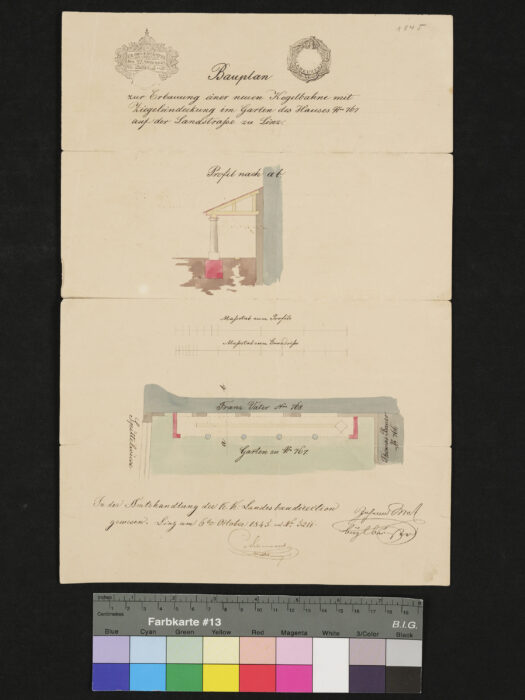 1845
Bauplan
zur Erbauung einer neuen Kegelbahne mit
Ziegeleindeckung im Garten des Hauses No 761
auf der Landstraße zu Linz.
Profil nach a b
Maßstab zum Profile
Maßstab zum Grundriße
b
Franz Vater No 768
Spittelwiese
a
Garten zu No 761.
No 766
In der Amtshandlung der K. K. Landesbaudirection
gewesen. Linz am 6ten October 1845. No 3216
Johann
inches
1 2 3 4 5 6 7 8
Centimetres
1 2 3 4 5 6 7 8 9 10 11 12 13 14 15 16 17 18 19
Farbkarte #13
B.I.G.
Blue Cyan Green Yellow Red Magenta White 3/Color Black